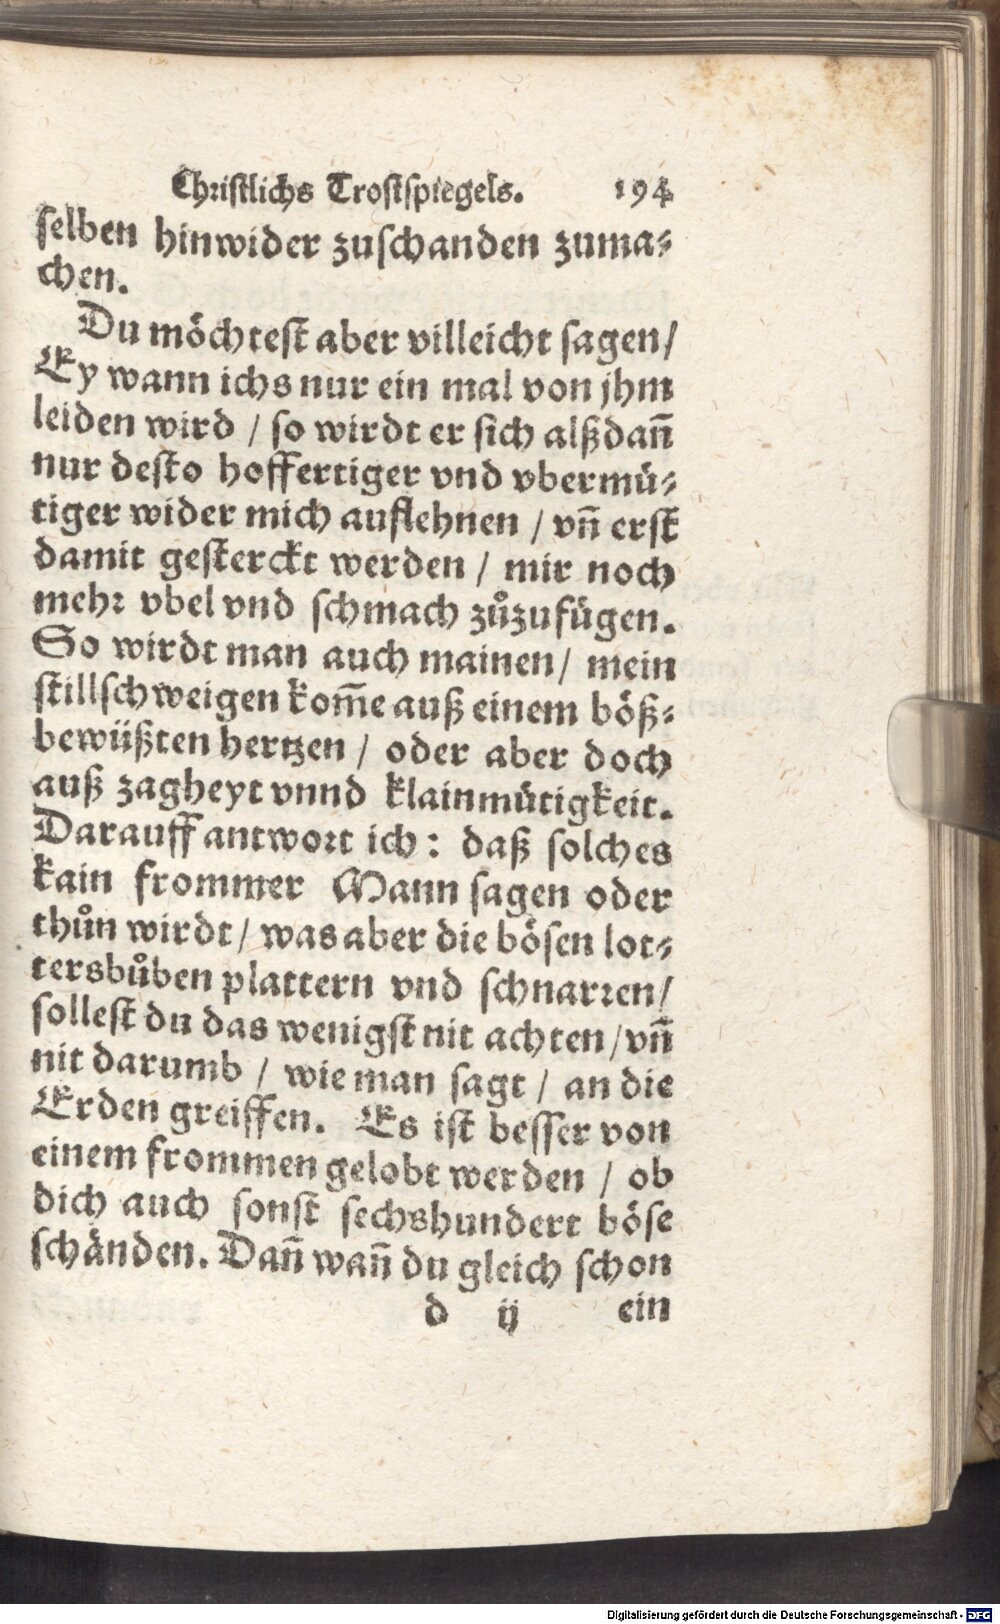 Christlichs Trostspiegels. 194
selben hinwider zuschanden zuma⸗
chen.
Du möchtest aber villeicht sagen/
Ey wann ichs nur ein mal von jhm
leiden wird / so wirdt er sich alßdañ
nur desto hoffertiger vnd vbermü⸗
tiger wider mich auflehnen / vñ erst
damit gesterckt werden / mir noch
mehr vbel vnd schmach zůzufügen.
So wirdt man auch mainen / mein
stillschweigen kom̃e auß einem böß⸗
bewüßten hertzen / oder aber doch
auß zagheyt vnnd klainmütigkeit.
Darauff antwort ich : daß solches
kain frommer Mann sagen oder
thůn wirdt / was aber die bösen lot⸗
tersbůben plattern vnd schnarren/
sollest du das wenigst nit achten / vñ
nit darumb / wie man sagt / an die
Erden greiffen. Es ist besser von
einem frommen gelobt werden / ob
dich auch sonst sechshundert böse
schänden. Dañ wañ du gleich schon
d ij ein
Digitalisierung gefördert durch die Deutsche Forschungsgemeinschaft - DFG